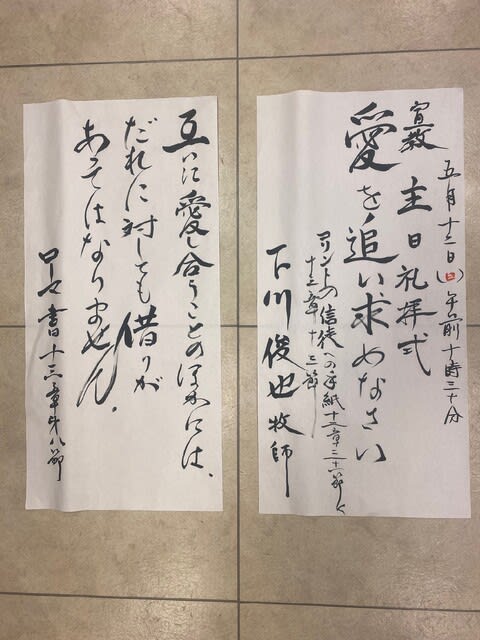 五月十二日(日)午前十時三十分
主日礼拝式
宣教
愛を追い求めなさい
コリントの信徒への手紙十二章三十一節〜
十三章十三節
下川俊也牧師
互いに愛し合うことのほかには、
だれに対しても借りが
あってはなりません。
ローマ書十三章第八節